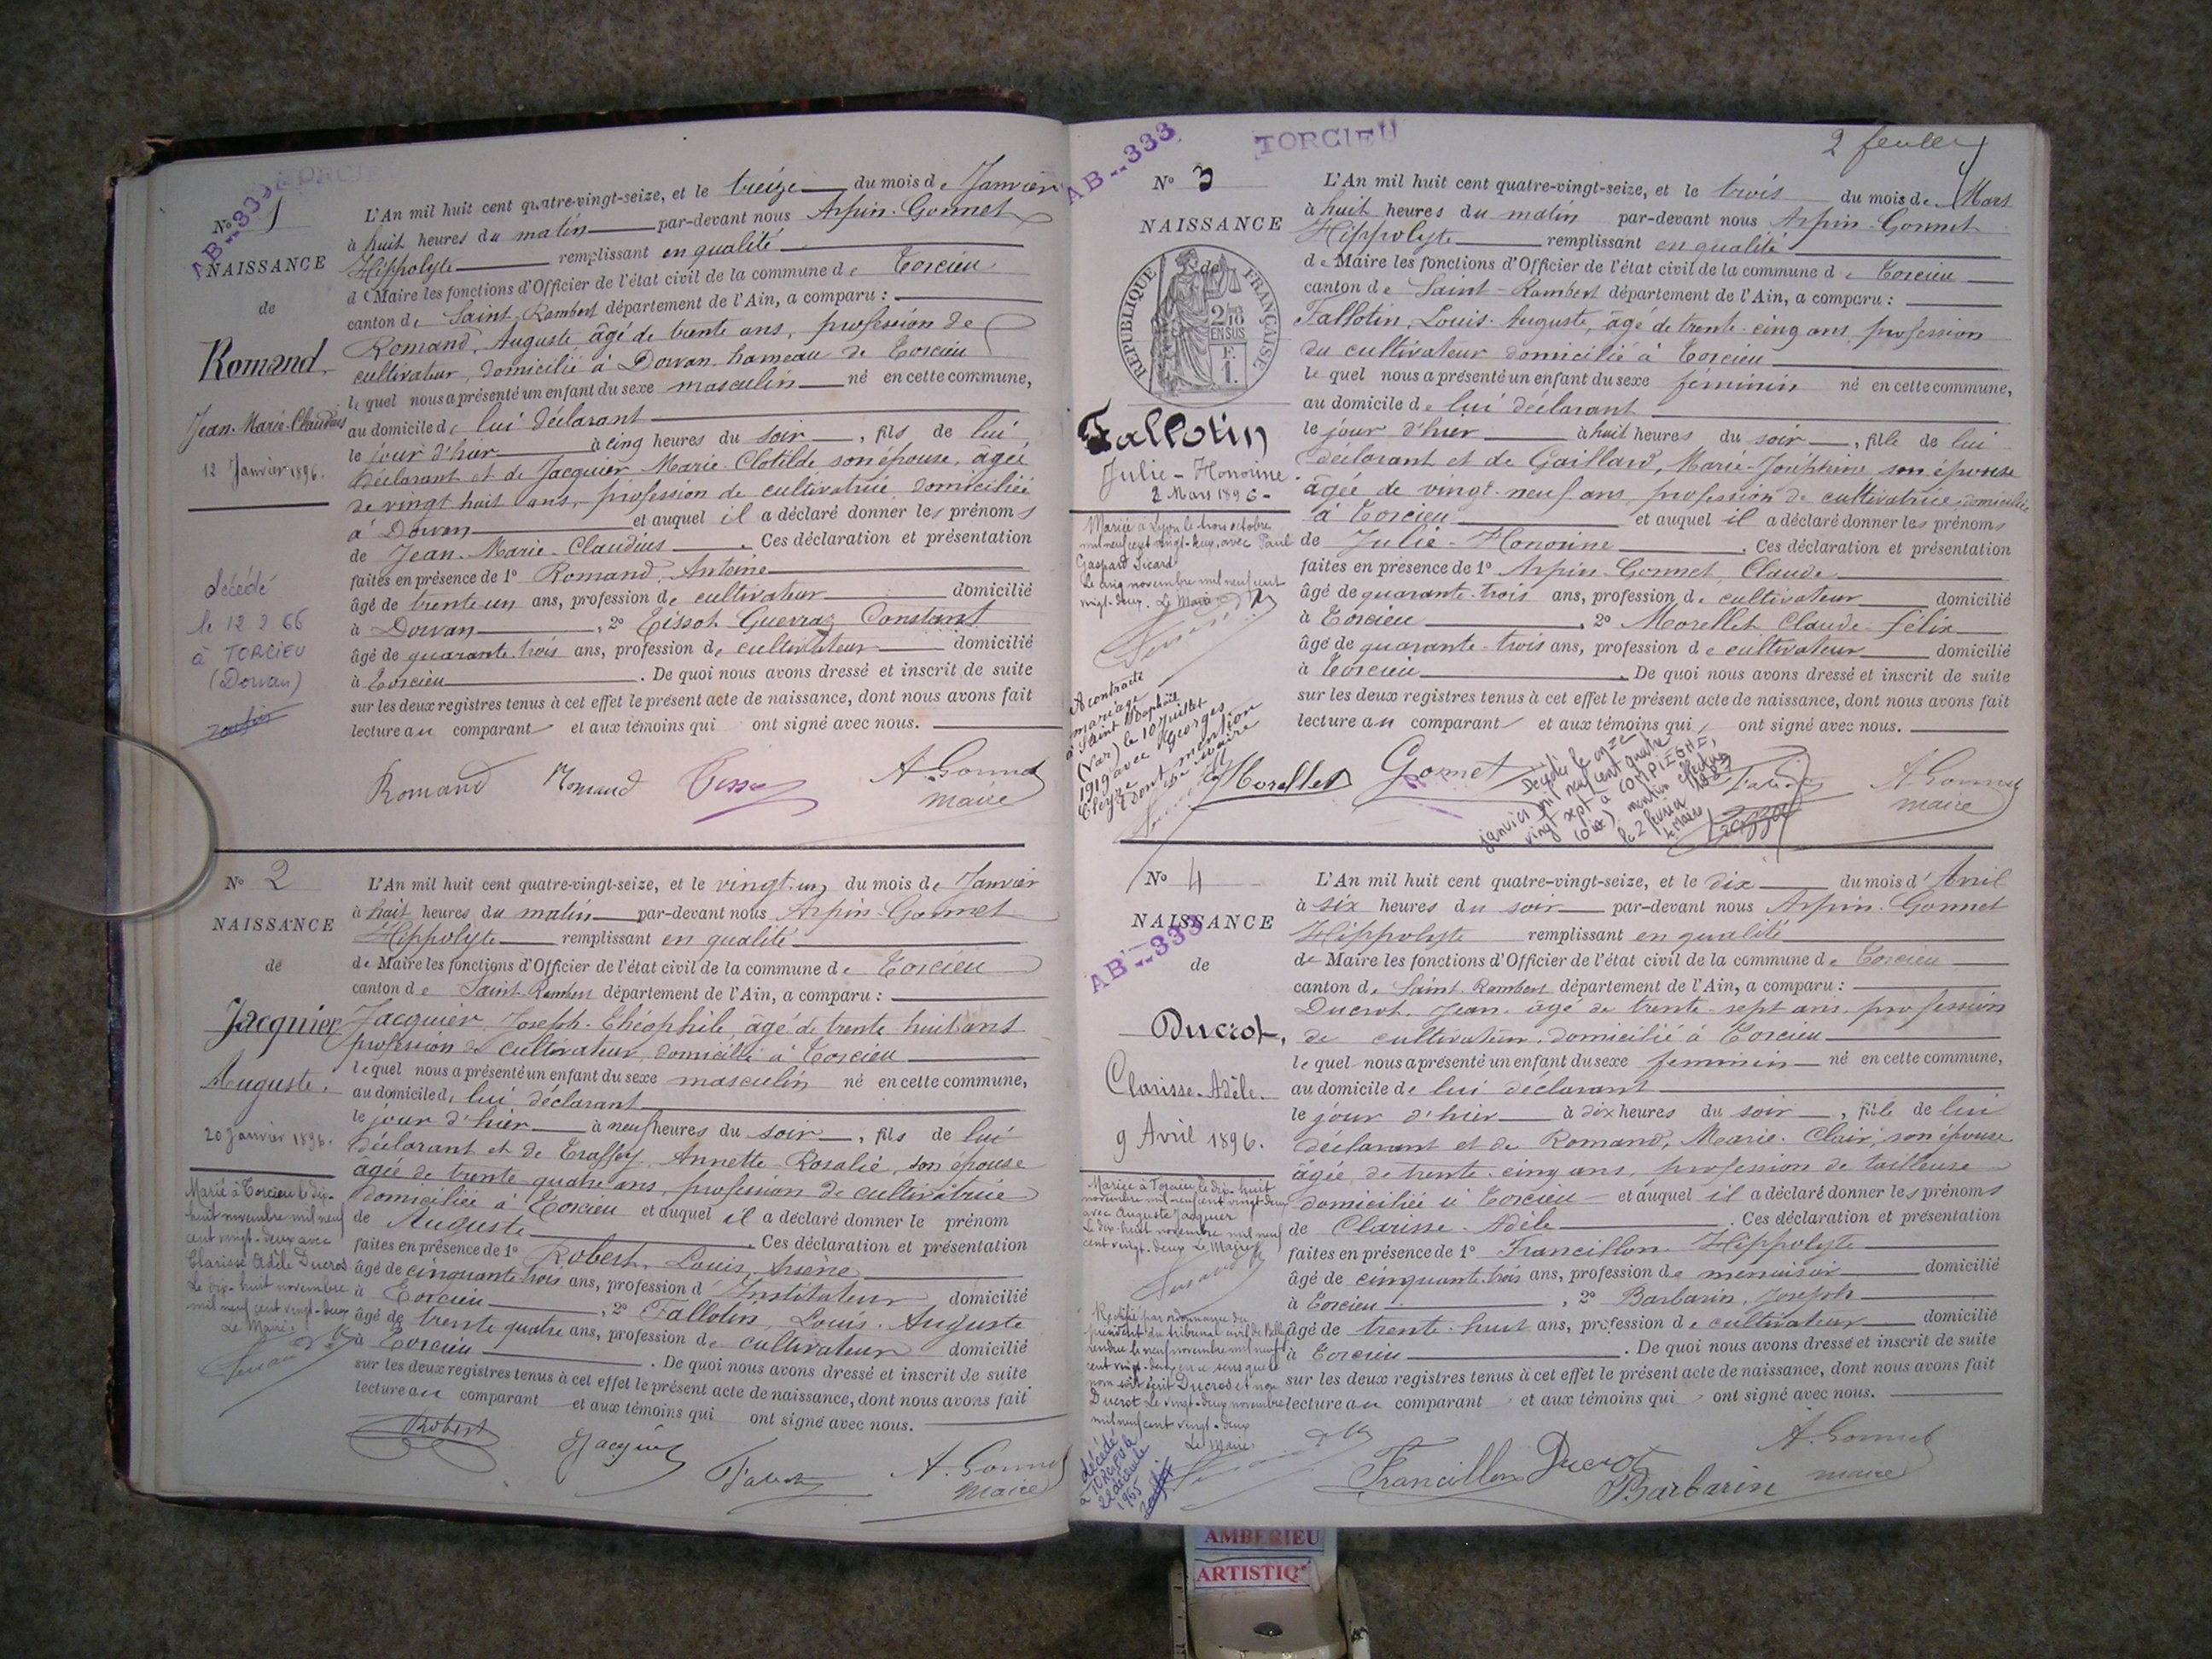 AB--333
N° 1
NAISSANCE
de
Romand.
Jean-Marie-Claudius
12 Janvier 1896.
Décédé
le 12 2 66
à TORCIEU
(Dorvan)
L'An mil huit cent quatre-vingt-seize, et le treize du mois de Janvier
à huit heures du matin par-devant nous Arpin-Gonnet
Hippolyte remplissant en qualité
de Maire les fonctions d'Officier de l'état civil de la commune de Torcieu
canton de Saint-Rambert département de l'Ain, a comparu :
Romand, Auguste, âgé de trente ans, profession de
cultivateur, domicilié à Dorvan hameau de Torcieu
lequel nous a présenté un enfant du sexe masculin né en cette commune,
au domicile de lui déclarant
le jour d'hier à cinq heures du soir, fils de lui
déclarant et de Jacquier Marie-Clotilde, son épouse, âgée
de vingt huit ans, profession de cultivatrice, domiciliée
à Dorvan et auquel il a déclaré donner les prénoms
de Jean-Marie-Claudius. Ces déclaration et présentation
faites en présence de 1° Romand, Antoine
âgé de trente un ans, profession de cultivateur domicilié
à Dorvan, 2° Tissot Guerraz Constant
âgé de quarante trois ans, profession de cultivateur domicilié
à Torcieu. De quoi nous avons dressé et inscrit de suite
sur les deux registres tenus à cet effet le présent acte de naissance, dont nous avons fait
lecture au comparant et aux témoins qui ont signé avec nous.
Romand Romand Tissot A. Gonnet
maire
N° 2
NAISSANCE
de
Jacquier
Auguste.
20 Janvier 1896.
Marié à Torcieu le dix-
huit novembre mil neuf
cent vingt-deux avec
Clarisse Adèle Ducros
Le dix-huit novembre
mil neuf cent vingt-deux
Le Maire
L'An mil huit cent quatre-vingt-seize, et le vingt-un du mois de Janvier
à huit heures du matin par-devant nous Arpin-Gonnet
Hippolyte remplissant en qualité
de Maire les fonctions d'Officier de l'état civil de la commune de Torcieu
canton de Saint-Rambert département de l'Ain, a comparu :
Jacquier, Joseph-Théophile, âgé de trente huit ans
profession de cultivateur, domicilié à Torcieu
lequel nous a présenté un enfant du sexe masculin né en cette commune,
au domicile de lui déclarant
le jour d'hier à neuf heures du soir, fils de lui
déclarant et de Annette-Rosalie, son épouse
âgée de trente quatre ans, profession de cultivatrice
domiciliée à Torcieu et auquel il a déclaré donner le prénom
de Auguste. Ces déclaration et présentation
faites en présence de 1° Robert, Louis, Arsène
âgé de cinquante trois ans, profession d'Instituteur domicilié
à Torcieu, 2° Fallotin, Louis-Auguste
âgé de trente quatre ans, profession de cultivateur domicilié
à Torcieu. De quoi nous avons dressé et inscrit de suite
sur les deux registres tenus à cet effet le présent acte de naissance, dont nous avons fait
lecture au comparant et aux témoins qui ont signé avec nous.
Robert Jacquier A. Gonnet
maire
AB--333
TORCIEU
2
N° 3
NAISSANCE
de
RÉPUBLIQUE FRANÇAISE
2/10
EN SUS
F.
1.
Fallotin
Julie-Honorine
2 Mars 1896-
Mariée à Lyon le trois octobre
mil neuf cent vingt-deux, avec Paul
Gaspard Sicard
Le cinq novembre mil neuf cent
vingt-deux. Le Maire
A contracté
mariage
à Saint Raphaël
(Var) le 10 Juillet
1919 avec Georges
dont mention
L'An mil huit cent quatre-vingt-seize, et le trois du mois de Mars
à huit heures du matin par-devant nous Arpin-Gonnet
Hippolyte remplissant en qualité
de Maire les fonctions d'Officier de l'état civil de la commune de Torcieu
canton de Saint-Rambert département de l'Ain, a comparu :
Fallotin, Louis-Auguste, âgé de trente-cinq ans, profession
du cultivateur domicilié à Torcieu
lequel nous a présenté un enfant du sexe féminin né en cette commune,
au domicile de lui déclarant
le jour d'hier à huit heures du soir, fille de lui
déclarant et de Gaillard, Marie-Joséphine son épouse
âgée de vingt-neuf ans, profession de cultivatrice, domiciliée
à Torcieu et auquel il a déclaré donner les prénoms
de Julie-Honorine. Ces déclaration et présentation
faites en présence de 1° Arpin-Gonnet, Claude
âgé de quarante-trois ans, profession de cultivateur domicilié
à Torcieu, 2° Morellet Claude-Félix
âgé de quarante-trois ans, profession de cultivateur domicilié
à Torcieu. De quoi nous avons dressé et inscrit de suite
sur les deux registres tenus à cet effet le présent acte de naissance, dont nous avons fait
lecture au comparant et aux témoins qui ont signé avec nous.
Morellet Gonnet A. Gonnet
maire
Décédée le onze
janvier mil neuf cent quatre
vingt sept à COMPIEGNE,
(Oise) mention effectuée
le 2 février 1987
le Maire
N° 4
NAISSANCE
AB--333
de
Ducrot,
Clarisse-Adèle.
9 Avril 1896.
Mariée à Torcieu le dix-huit
novembre mil neuf cent vingt-deux
avec Auguste Jacquier
Le dix-huit novembre mil neuf
cent vingt-deux Le Maire
Rectifié par ordonnance du
président du tribunal civil de Belley
rendue le neuf novembre mil neuf
cent vingt-deux en ce sens que le
nom soit écrit Ducros et non
Ducrot. Le vingt-deux novembre
mil neuf cent vingt-deux
Le Maire.
décédée
à TORCIEU le
22 décembre
1965
L'An mil huit cent quatre-vingt-seize, et le dix du mois d'Avril
à six heures du soir par-devant nous Arpin-Gonnet
Hippolyte remplissant en qualité
de Maire les fonctions d'Officier de l'état civil de la commune de Torcieu
canton de Saint-Rambert département de l'Ain, a comparu :
Ducrot, Jean, âgé de trente-sept ans, profession
de cultivateur, domicilié à Torcieu
lequel nous a présenté un enfant du sexe féminin né en cette commune,
au domicile de lui déclarant
le jour d'hier à dix heures du soir, fille de lui
déclarant et de Romand, Marie-Clair, son épouse
âgée de trente-cinq ans, profession de tailleuse
domiciliée à Torcieu et auquel il a déclaré donner les prénoms
de Clarisse-Adèle. Ces déclaration et présentation
faites en présence de 1° Francillon Hippolyte
âgé de cinquante-trois ans, profession de menuisier domicilié
à Torcieu, 2° Barbarin, Joseph
âgé de trente-huit ans, profession de cultivateur domicilié
à Torcieu. De quoi nous avons dressé et inscrit de suite
sur les deux registres tenus à cet effet le présent acte de naissance, dont nous avons fait
lecture au comparant et aux témoins qui ont signé avec nous.
Francillon Ducrot Barbarin A. Gonnet
maire
AMBERIEU
ARTISTIQ